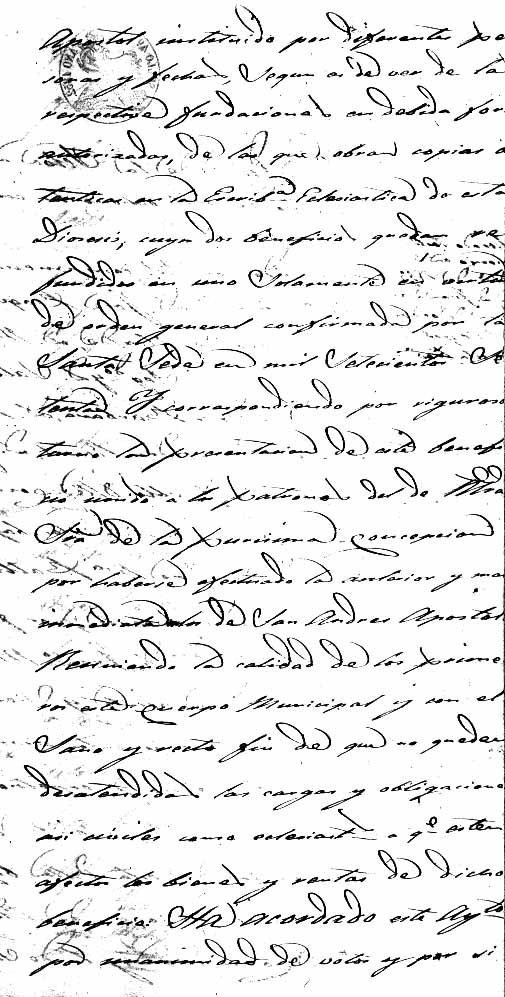 Apostol instituido por diferentes pe
sonas y fechas, segun es de ver de la
respective fundaciones en debida for
autorizadas, de las que obran copias a
tenticas en la Escribª Eclesiastica de esta
Diocesis, cuyos dos beneficios quedan re
fundidos en uno Solamente en virtud
de orden general confirmada por la
Santa Sede en mil Setecientos Se
tenta. Y correspondiendo por riguroso
turno la presentacion de este benefi
cio unido a los patronos del de Ntra
Srª de la purisima Concepcion
por haberse efectuado la anterior y mas
inmediata de San Andres Apostol
Reuniendo la calidad de los prime
ros este Cuerpo Municipal y con el
Sano y recto fin de que no queden
desatendidas las cargas y obligacione
asi civiles como eclesiast a qe esten
afectos los bienes y rentas de dicho
beneficio: Ha acordado este Aytº
por unanimidad de votos y por si